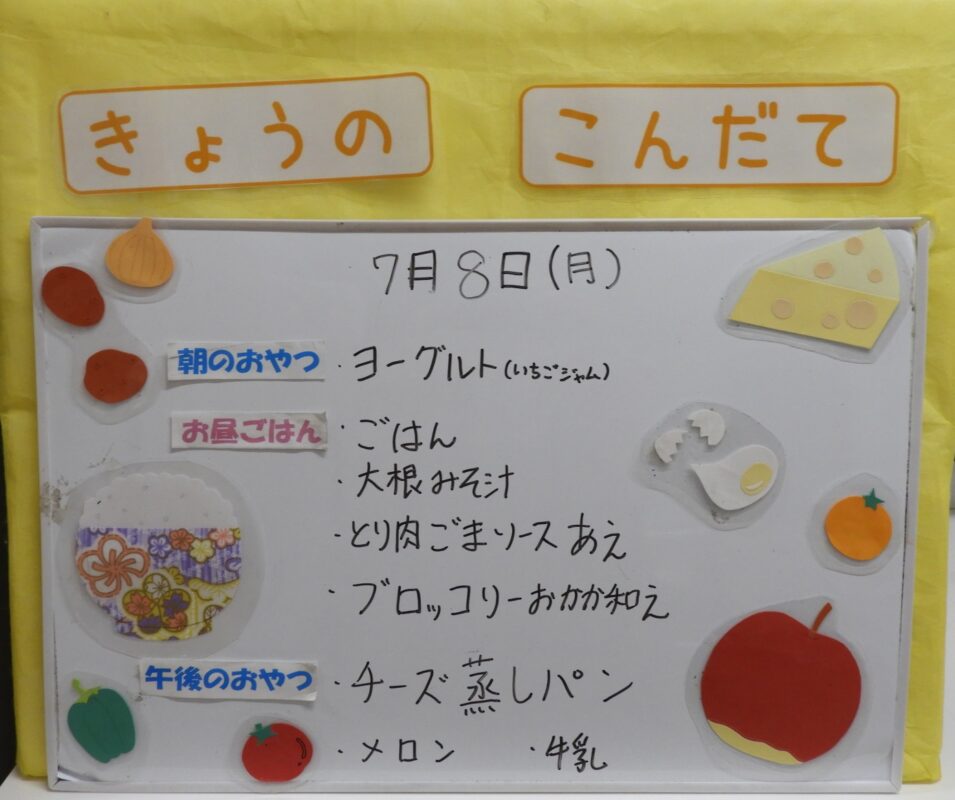 きょうの こんだて
7月8日(月)
朝のおやつ ・ヨーグルト(いちごジャム)
お昼ごはん ・ごはん
・大根みそ汁
・とり肉ごまソースあえ
・ブロッコリーおかか和え
午後のおやつ ・チーズ蒸しパン
・メロン ・牛乳